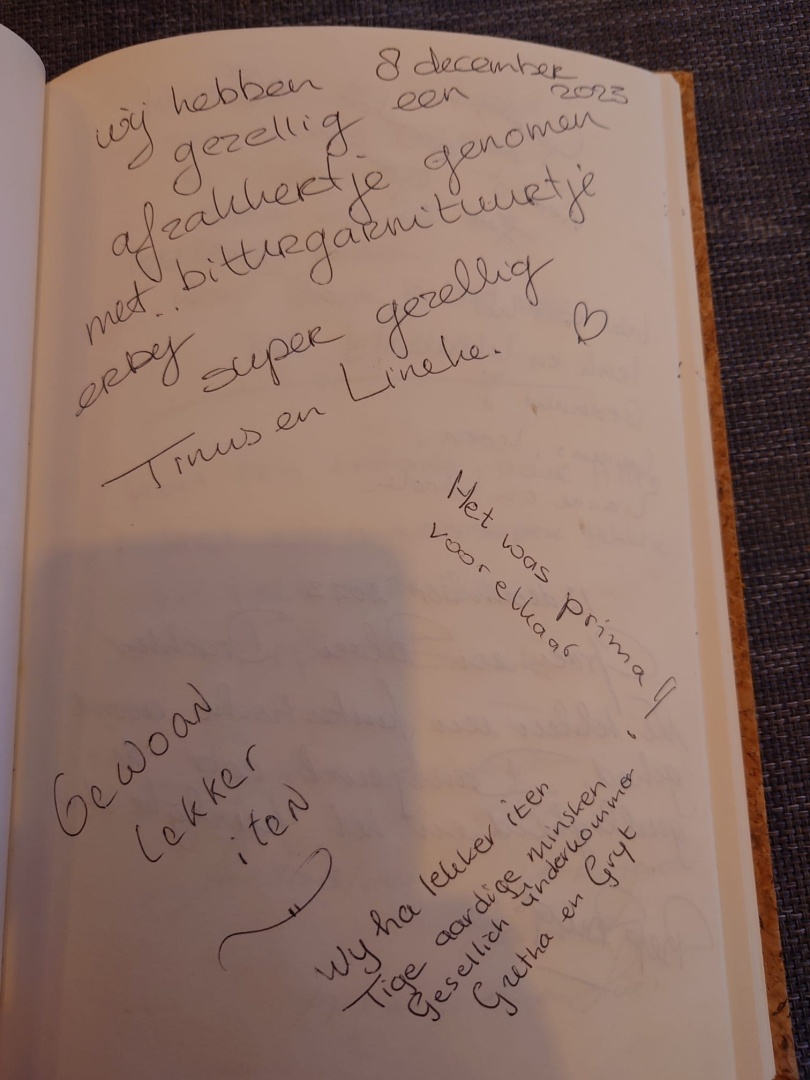 wij hebben 8 december
gezellig een 2023
afzakkertje genomen
met.. bitturgarnituurtje
erbij super gezellig
Tinus en Lineke.
Het was prima
voor elkaar
Gewoan
lekker
iten
Wy ha lekker iten
Tige aardige minsken
Gesellich ûnderkommen
Gretha en Gryt